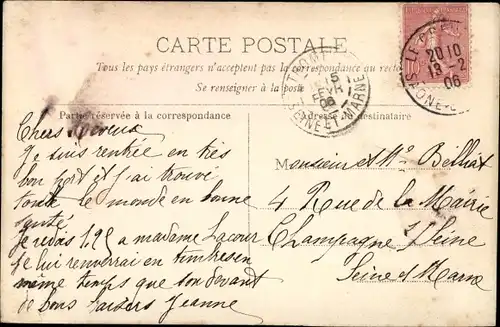 CARTE POSTALE
Tous les pays étrangers n'acceptent pas la correspondance au recto
Se renseigner à la poste
LE CR
20 10
13-2
06
SAÔNE
THOM
15
EVR
06
SEINE ET MARNE
Partie réservée à la correspondance
Adresse du destinataire
Chers Neveux
Je suis rentrée en très
bon port et j'ai trouvé
toute le monde en bonne
santé
je redois 1.25 a madame Lacour
je lui renverrai en timbres en
même temps que son devant
de bons baisers Jeanne
Monsieur et Me Belliat
4 Rue de la Mairie
Champagne s/ Seine
Seine et Marne